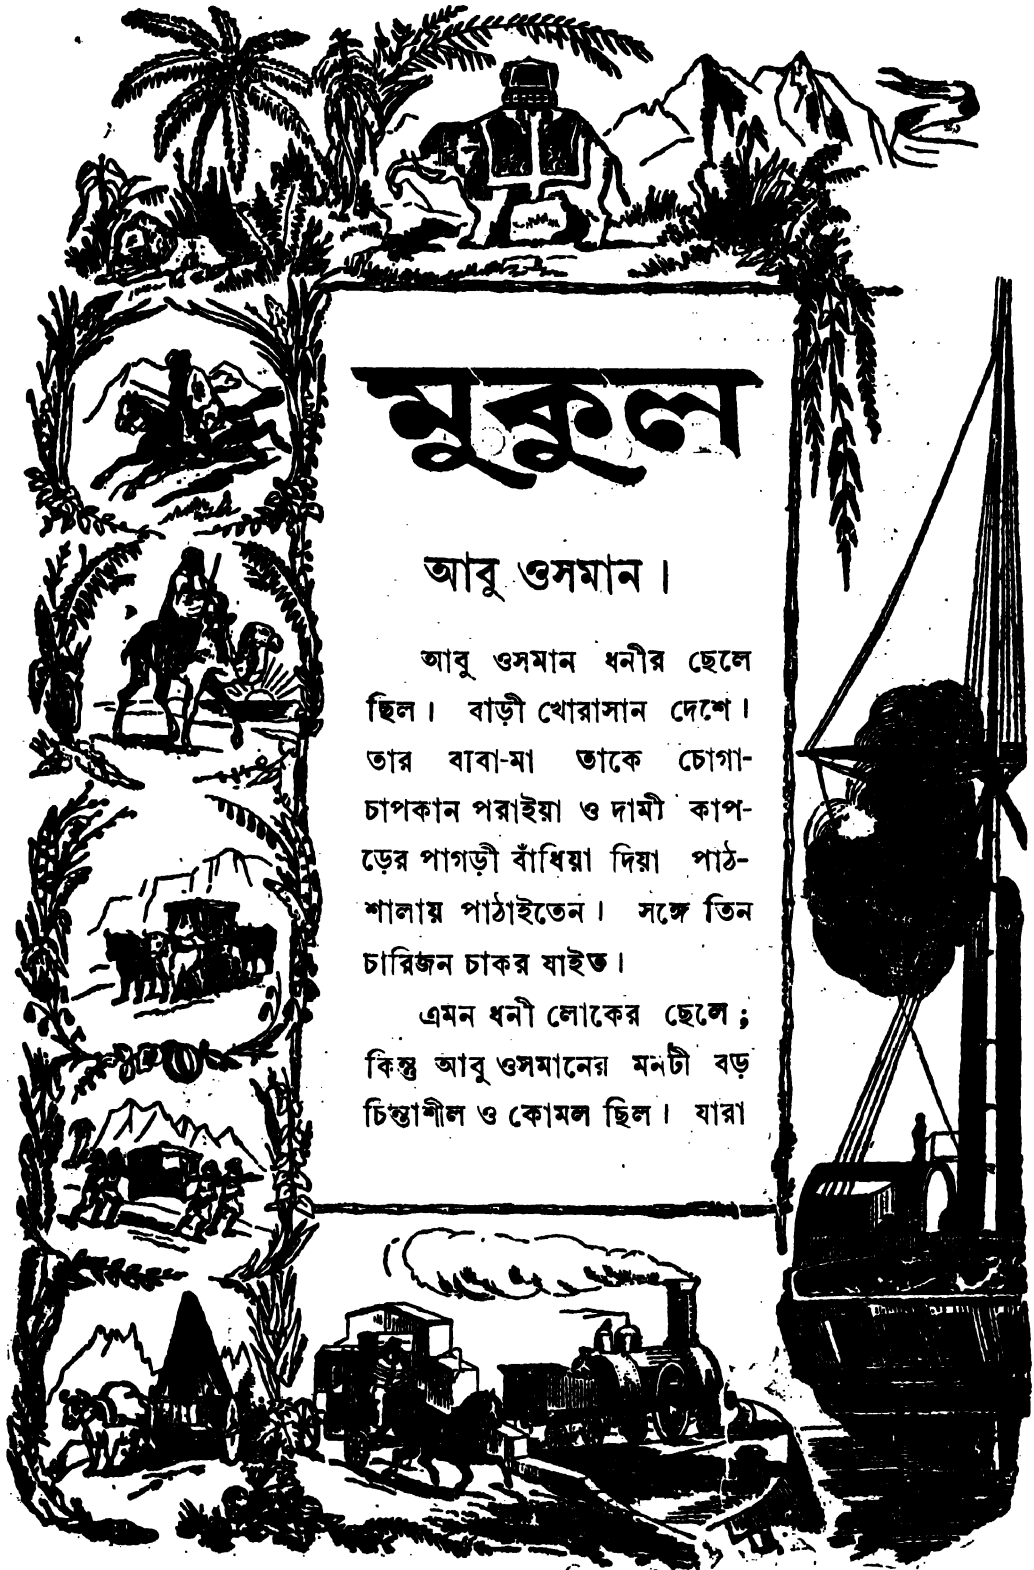 মুকুল
আবু ওসমান।
আবু ওসমান ধনীর ছেলে
ছিল। বাড়ী খোরাসান দেশে।
তার বাবা-মা তাকে চোগা-
চাপকান পরাইয়া ও দামী কাপ-
ড়ের পাগড়ী বাঁধিয়া দিয়া পাঠ-
শালায় পাঠাইতেন। সঙ্গে তিন
চারিজন চাকর যাইত।
এমন ধনী লোকের ছেলে ;
কিন্তু আবু ওসমানের মনটী বড়
চিন্তাশীল ও কোমল ছিল। যারা